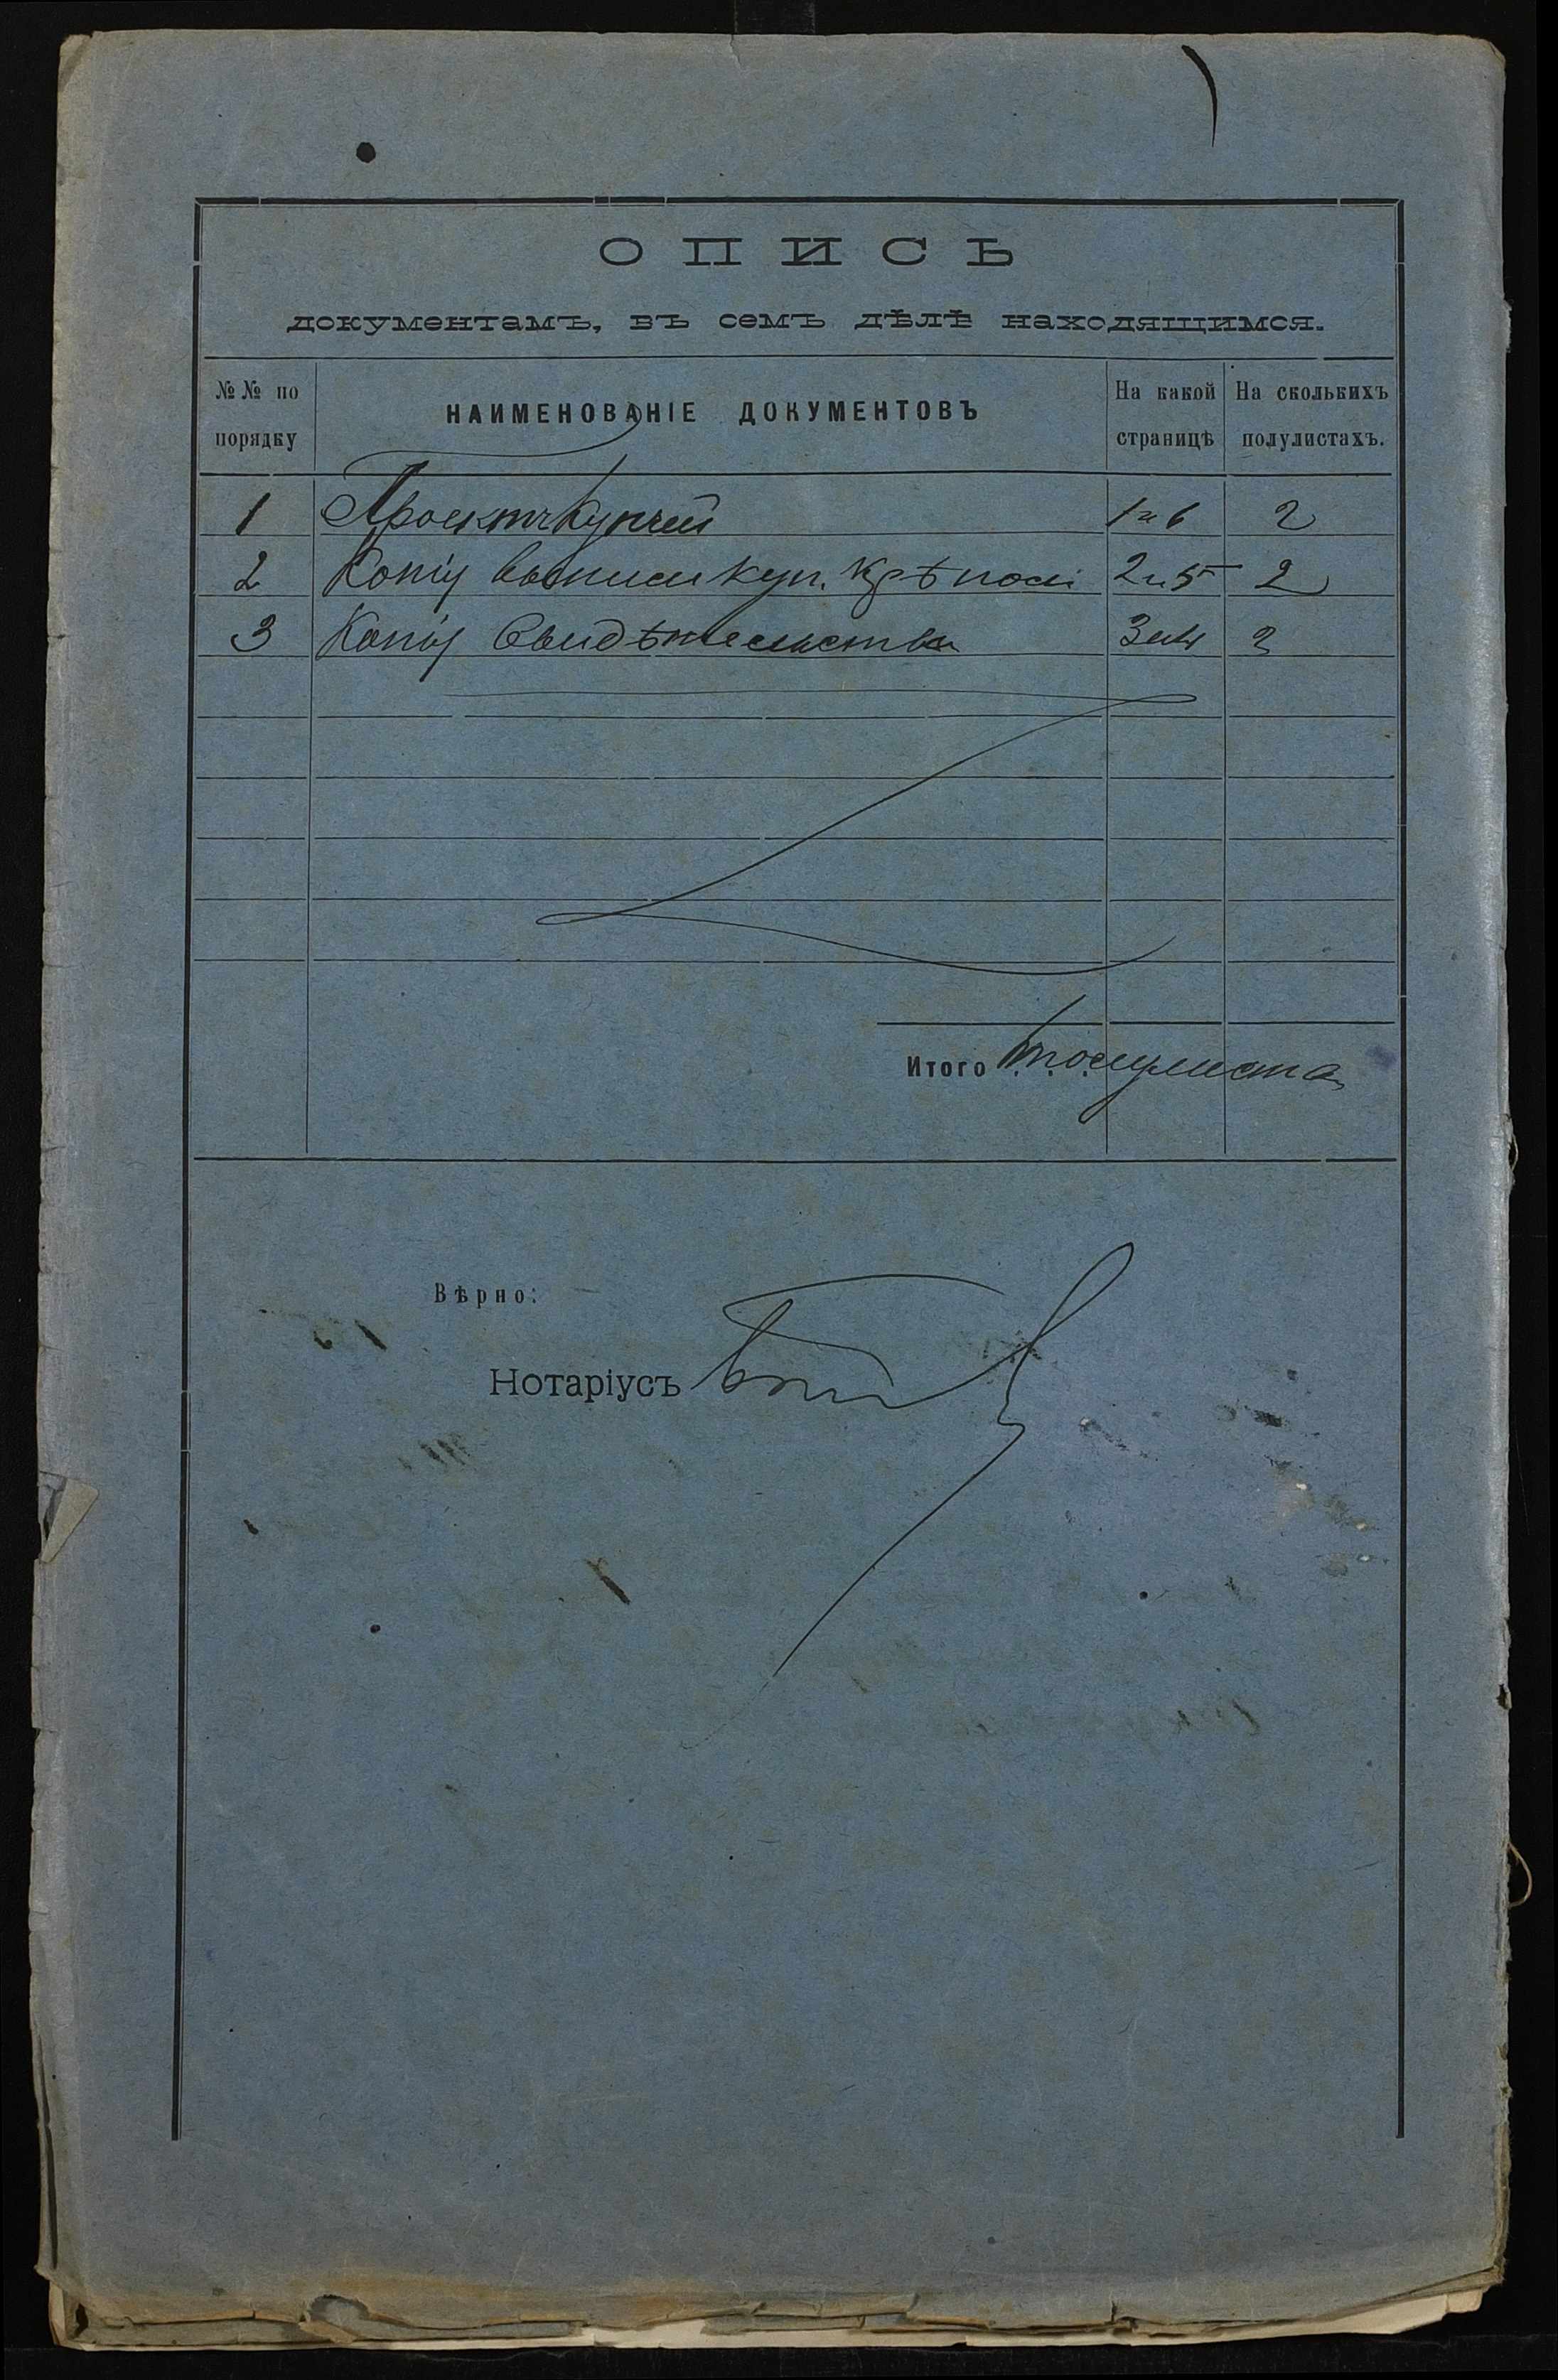 ОПИСЬ
документамъ, въ семъ дѣлѣ находящимся.
№№ по порядку НАИМЕНОВАНІЕ ДОКУМЕНТОВЪ На какой страницѣ На сколькихъ полулистахъ.
1 Проектъ купчей 1 и 6 2
2 Копія выписи куп. крѣпости 2 и 5 2
3 Копія свидѣтельства 3 и 4 2
Итого 6 полулиста
Вѣрно:
Нотаріусъ